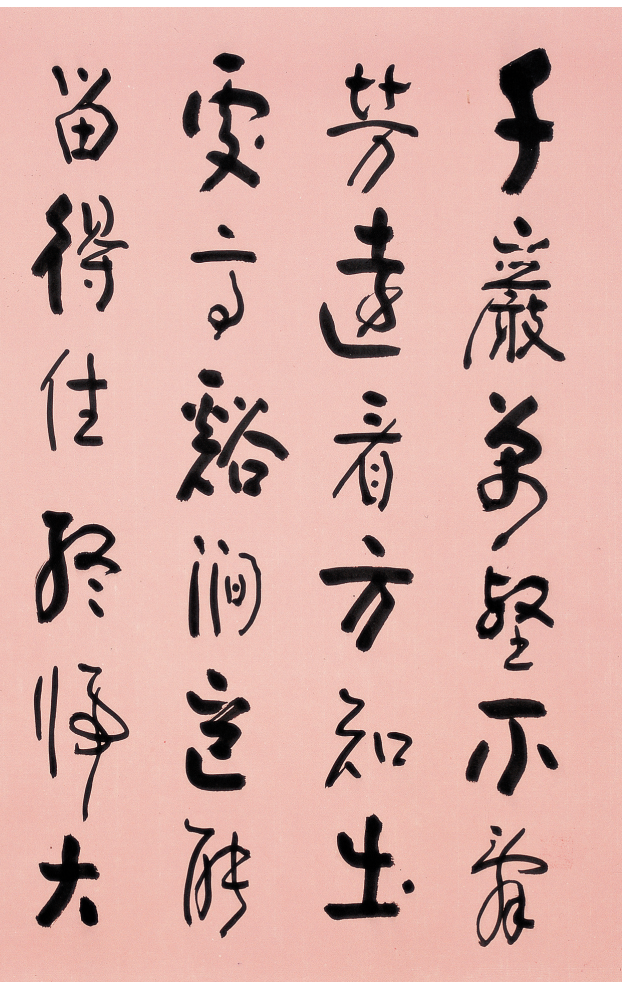 千巖萬壑不辭
勞遠看方知出
處高谿澗豈能
留得住終歸大